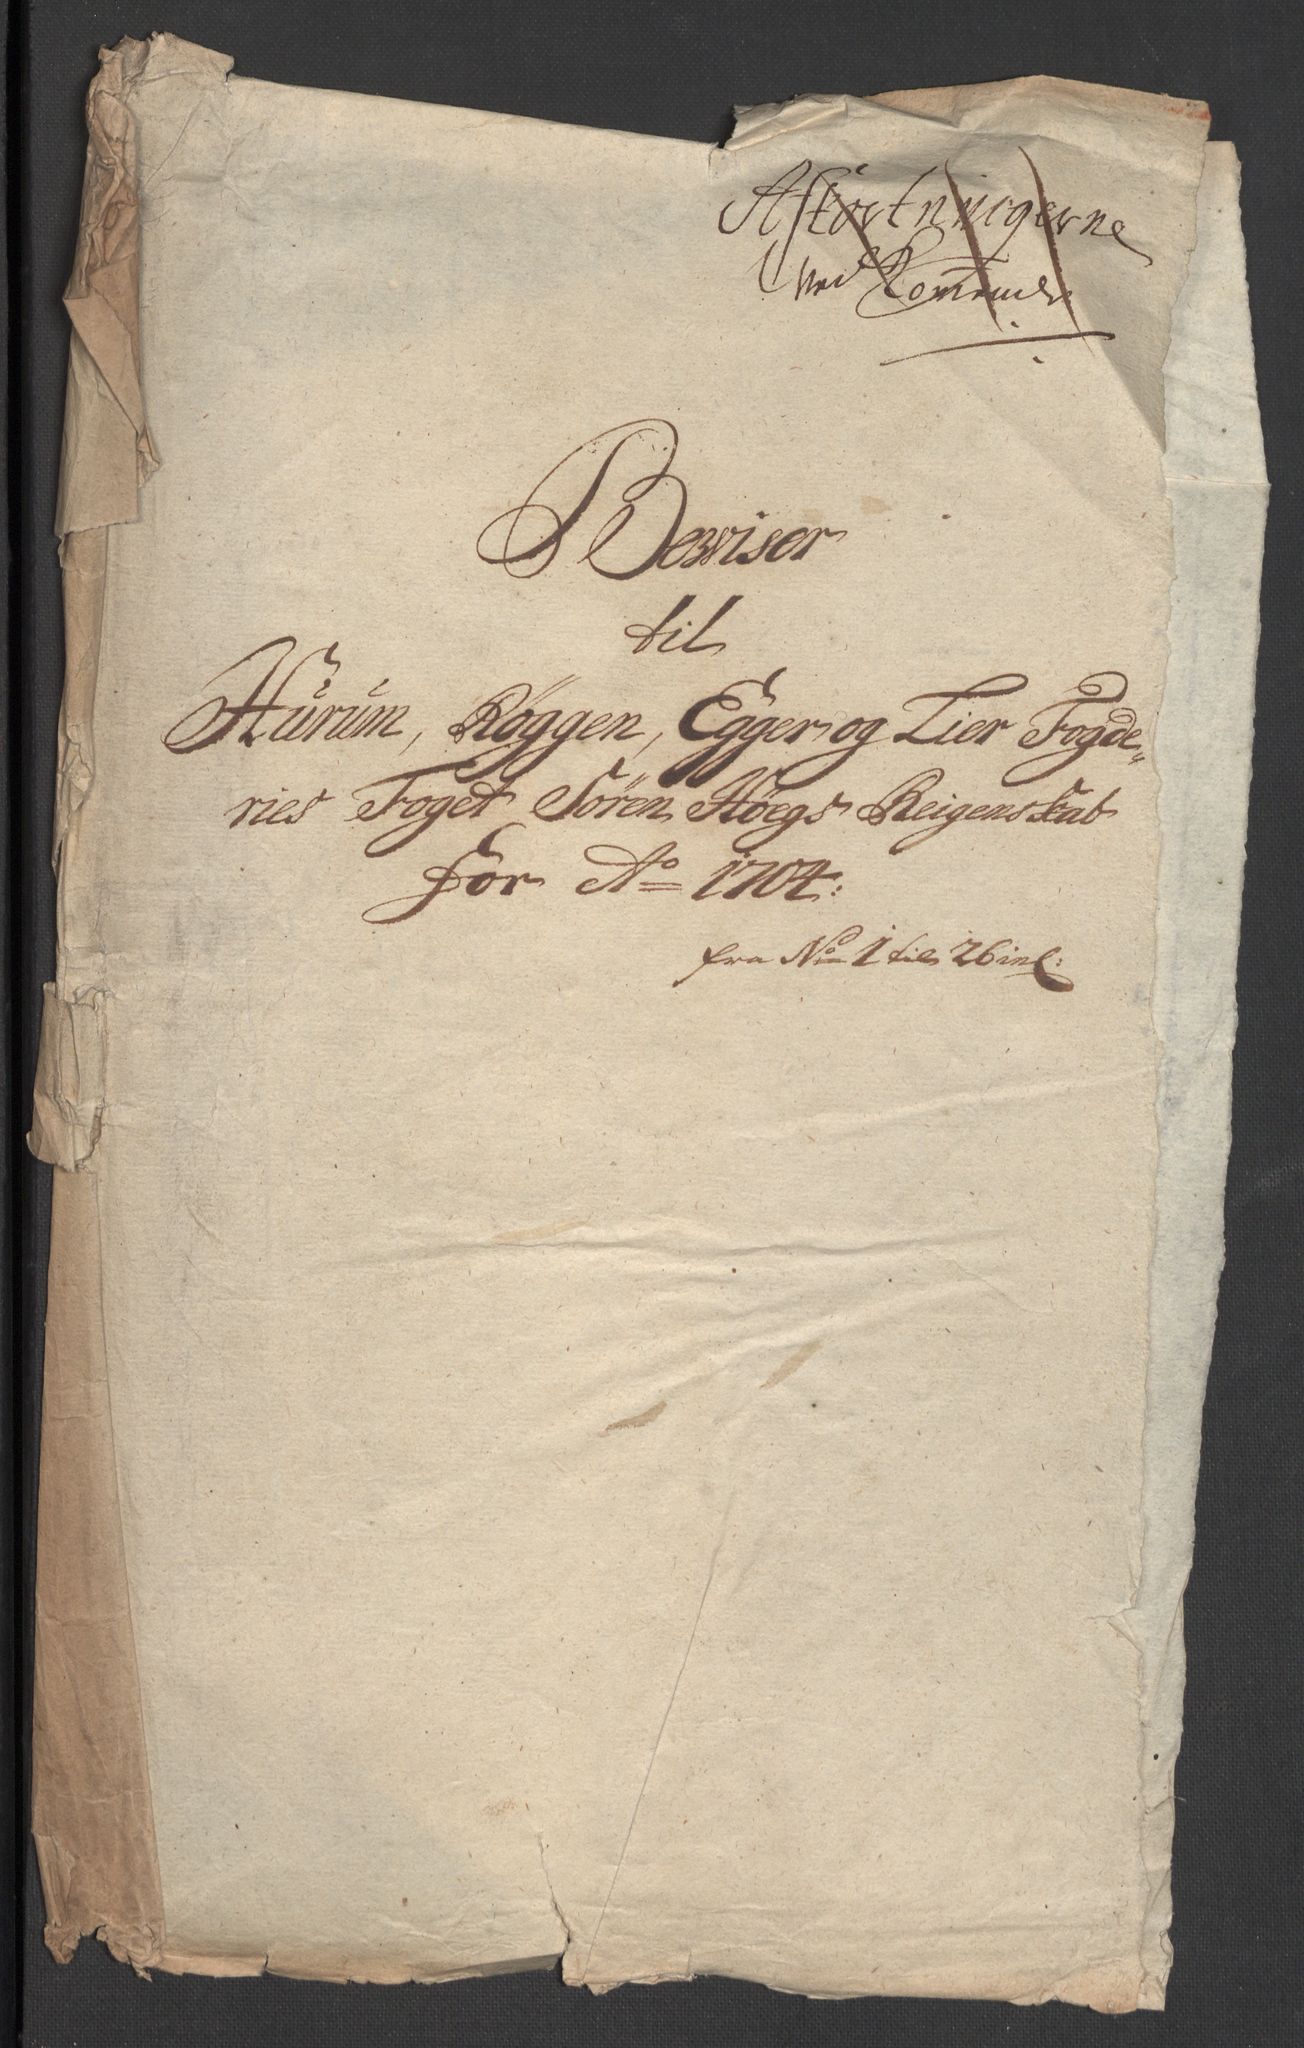 Afkortningerne
ved Kommende
Bewiser
til
Hurum, Röggen, Egger og Lier Fogde„
ries Foget Sören Höegs Reigenskab
for Ao 1704:
fra No 1 til 26 incl: